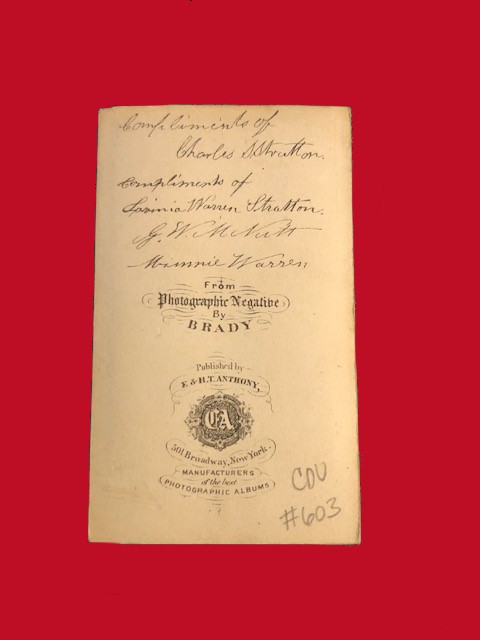 Compliments of
Charles S. Stratton.
Compliments of
Lavinia Warren Stratton.
G. W. McNutt
Minnie Warren
From
Photographic Negative
By
BRADY
Published by
E. & H.T. ANTHONY,
EA
501 Broadway, New York.
MANUFACTURERS
of the best
PHOTOGRAPHIC ALBUMS
CDV
#603